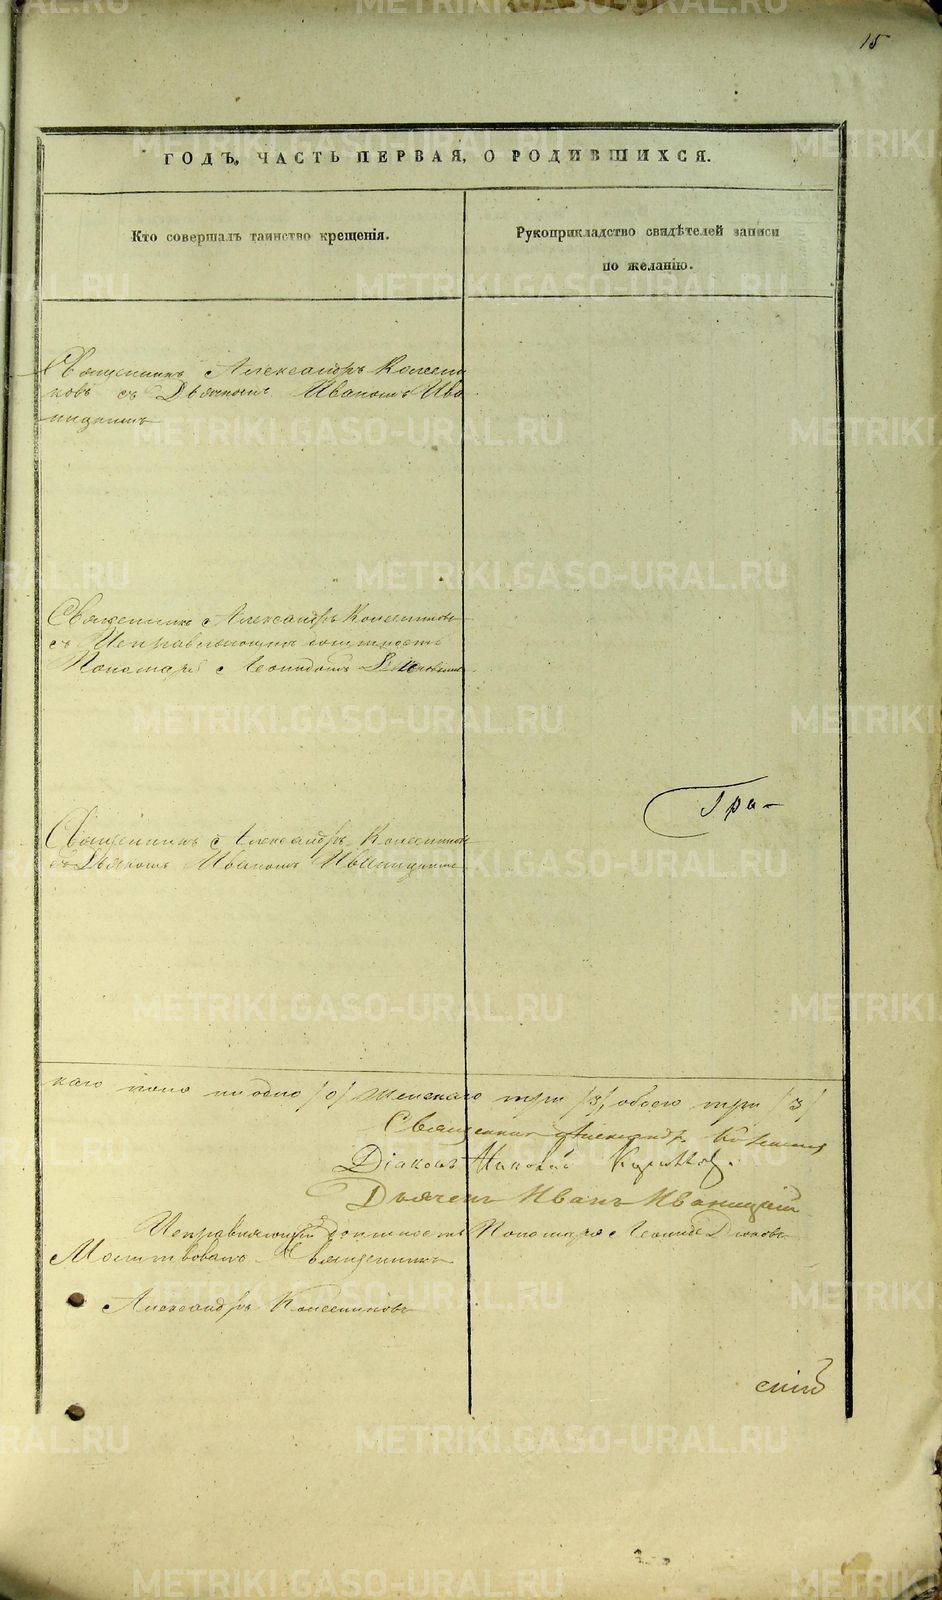 15
ГОДЪ, ЧАСТЬ ПЕРВАЯ, О РОДИВШИХСЯ.
Кто совершалъ таинство крещенія.
Рукоприкладство свидѣтелей записи
по желанію.
Священникъ Александръ Колесни
ковъ съ Дьячкомъ Иваномъ Ива
ницкимъ
Священникъ Александръ Колесниковъ
съ Исправляющимъ должность
Пономаря Леонидомъ
Гра-
Священникъ Александръ Колесниковъ
съ Дьячкомъ Иваномъ Иваницкимъ
каго пола ни одно /0/ женскаго три /3/, обоего три /3/
Священникъ Александръ Колесников
Діаконъ Николай
Дьячекъ Иванъ Иваницкій
Исправляющій должность Пономаря Леонидъ
Священникъ
Александръ Колесниковъ
METRIKI.GASO-URAL.RU